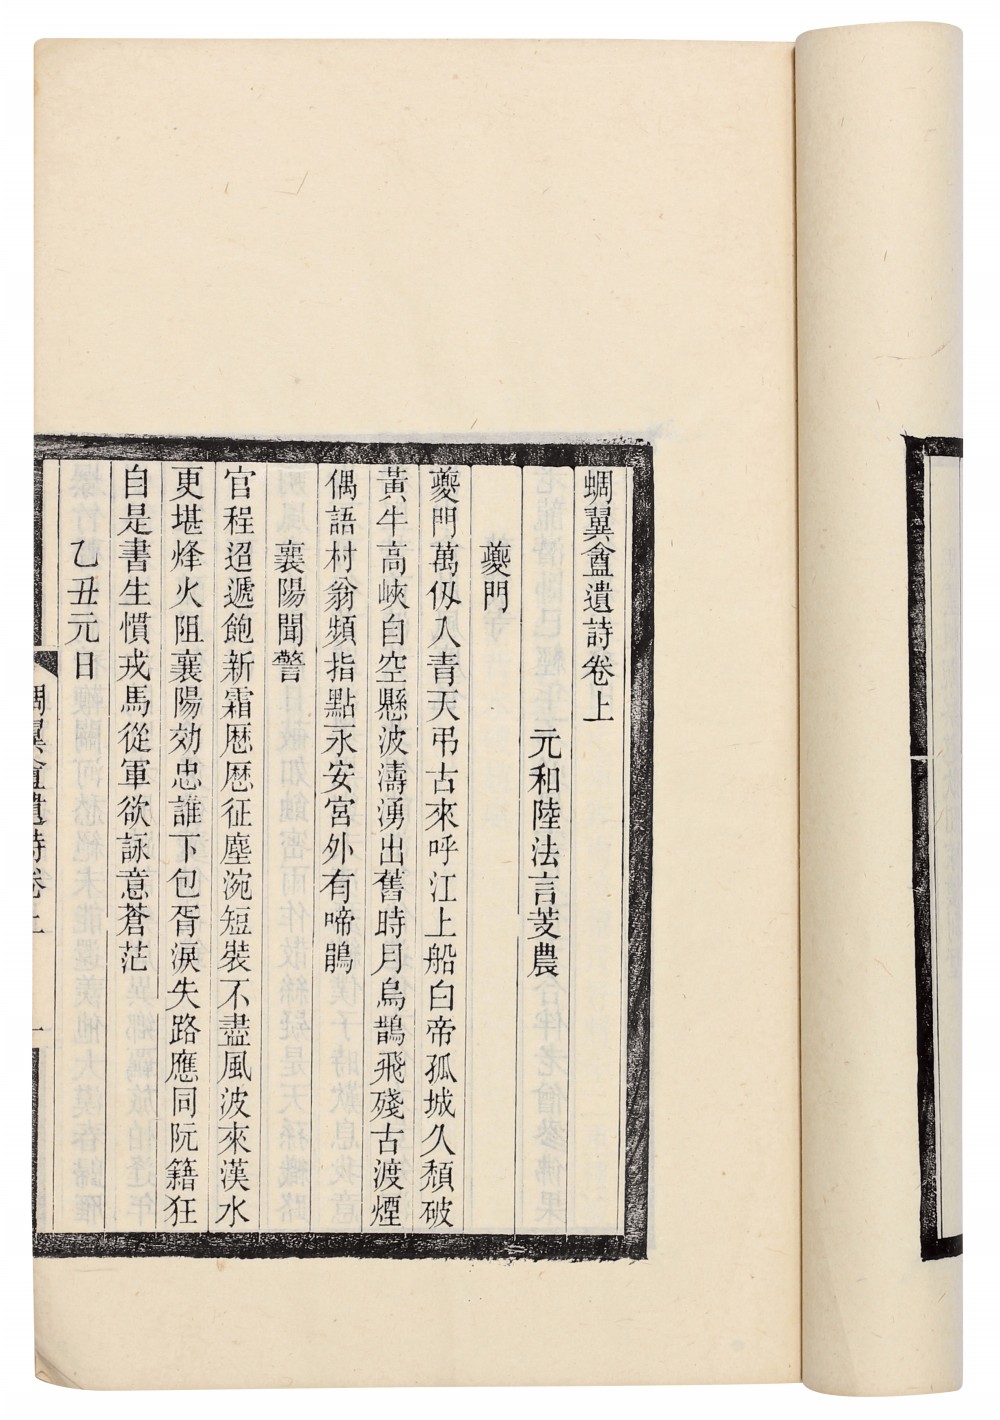 蜩翼盦遺詩卷上
元和陸法言芰農
夔門
夔門萬仭入青天弔古來呼江上船白帝孤城久頽破
黃牛高峽自空懸波濤湧出舊時月烏鵲飛殘古渡煙
偶語村翁頻指點永安宮外有啼鵑
襄陽聞警
官程迢遞飽新霜厯厯征塵涴短裝不盡風波來漢水
更堪烽火阻襄陽効忠誰下包胥淚失路應同阮籍狂
自是書生慣戎馬從軍欲詠意蒼茫
乙丑元日
蜩翼盦遺詩卷上
一